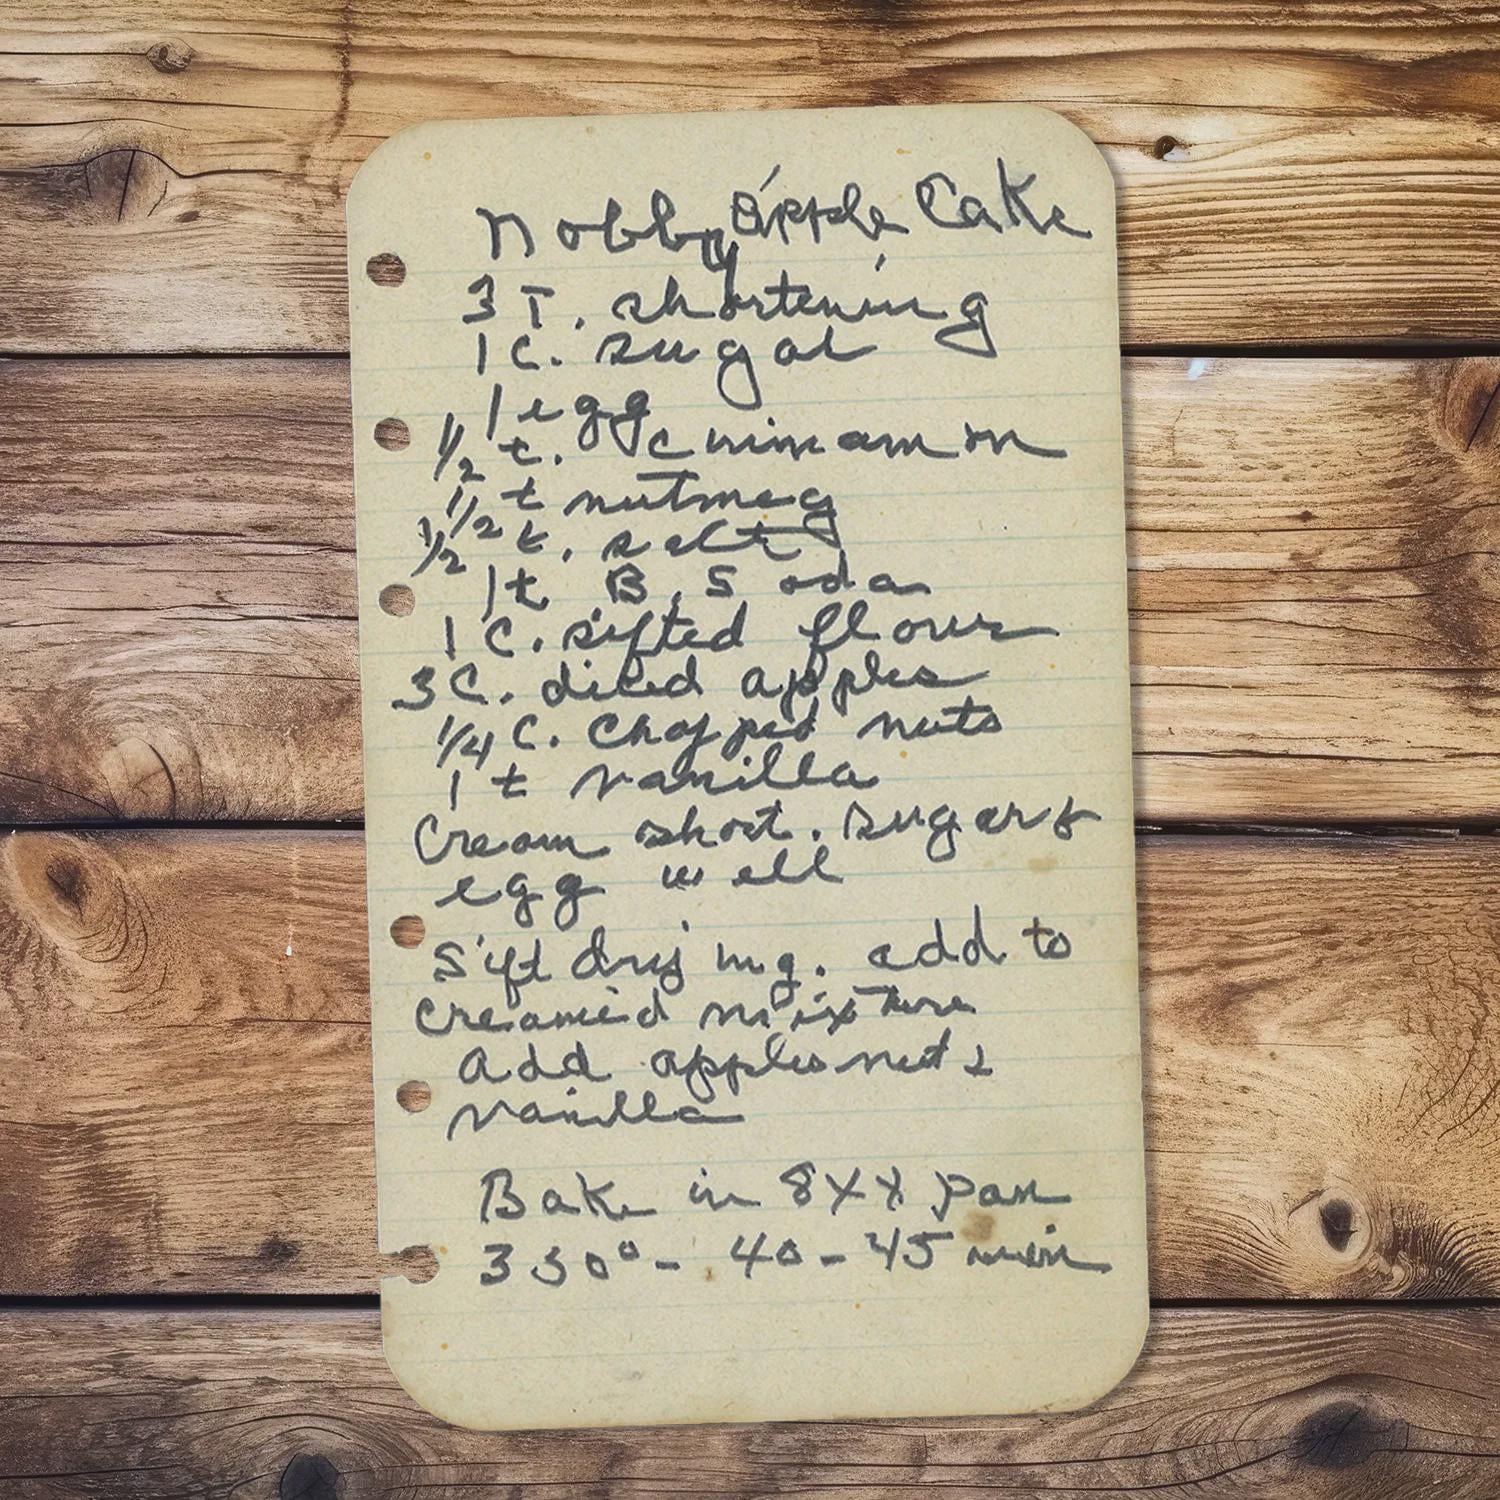 Nobby Apple Cake
3 T. shortening
1 C. sugar
1 egg
1/2 t. cinnamon
1/2 t nutmeg
1/2 t. salt
1 t B. Soda
1 C. sifted flour
3 C. diced apples
1/4 C. chopped nuts
1 t vanilla
Cream short. sugar &
egg well
Sift dry ing. add to
creamed mixture
add apples nuts
vanilla
Bake in 8XX pan
350° - 40 - 45 min